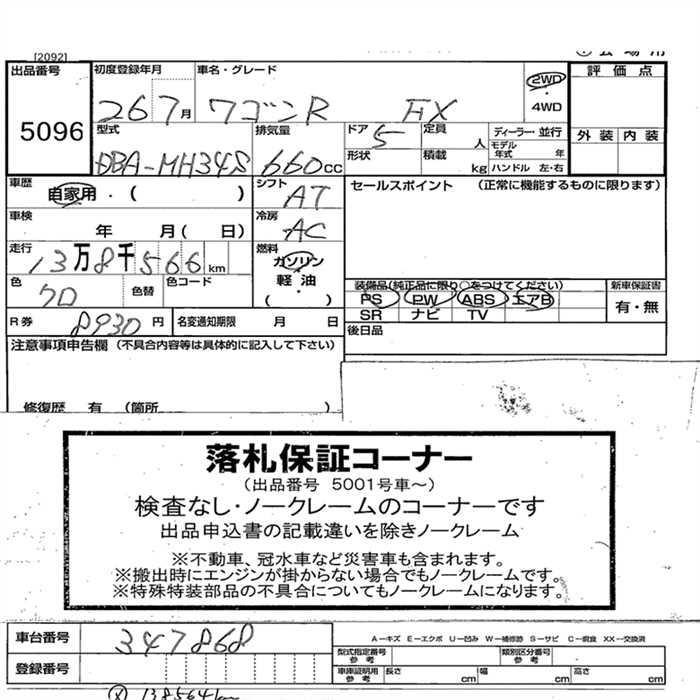 [2092]
出品番号 初度登録年月 車名・グレード 2WD ・ 4WD 評価点
5096 26 7月 ワゴンR FX
型式 排気量 ドア 定員 人 ディーラー・並行 外装 内装
DBA-MH34S 660cc 5 形状 積載 kg モデル年式 年 ハンドル 左・右
車歴 自家用・( ) シフト AT セールスポイント (正常に機能するものに限ります)
車検 年 月( 日) 冷房 AC
走行 13万8千566km 燃料 ガソリン 軽油 ( )
色 クロ 色替 色コード
装備品(純正品に限り○をつけてください) 新車保証書
PS PW ABS エアB 有・無
SR ナビ TV
R券 8930円 名変通知期限 月 日 後日品
注意事項申告欄 (不具合内容等は具体的に記入して下さい)
修復歴 有 (箇所 )
落札保証コーナー
(出品番号 5001号車〜)
検査なし・ノークレームのコーナーです
出品申込書の記載違いを除きノークレーム
※不動車、冠水車など災害車も含まれます。
※搬出時にエンジンが掛からない場合でもノークレームです。
※特殊特装部品の不具合についてもノークレームになります。
車台番号 347868 A-キズ E-エクボ U-凹み W-補修跡 S-サビ C-腐食 XX-交換済
型式指定番号 参考 類別区分番号 参考
登録番号 車庫証明用 参考 長さ cm 幅 cm 高さ cm
138564km